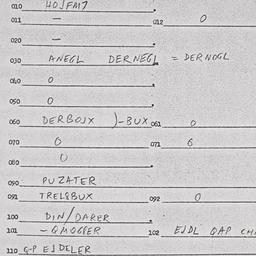 010 HOJFM7
011 — 012 0
020 —
030 ANEGL DERNEGL = DERNOGL
040 0
050 0
060 DERBOJX )-BUX 061 0
070 0 071 6
080 0
090 PUZATER
091 TRELGBUX 092 0
100 DIN/DAKER
101 -GMOGGER 102 EJDL GAP
110 G-P EJDELER